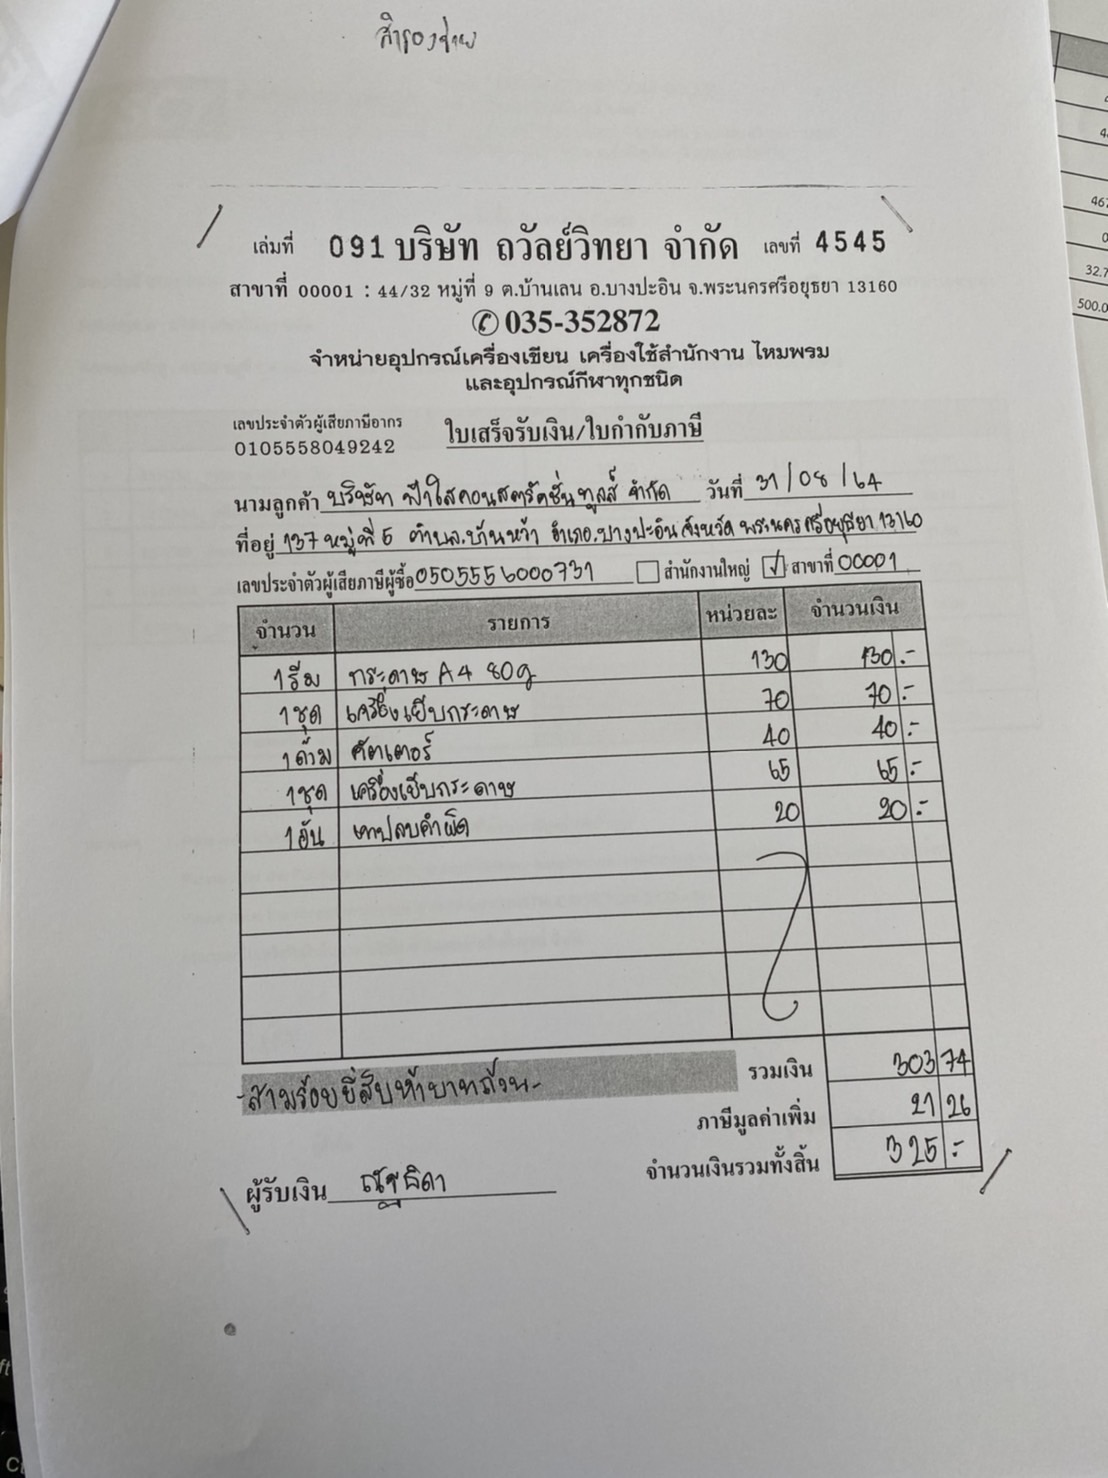 สำรองจ่าย
เล่มที่ 091 บริษัท ถวัลย์วิทยา จำกัด เลขที่ 4545
สาขาที่ 00001 : 44/32 หมู่ที่ 9 ต.บ้านเลน อ.บางปะอิน จ.พระนครศรีอยุธยา 13160
✆ 035-352872
จำหน่ายอุปกรณ์เครื่องเขียน เครื่องใช้สำนักงาน ไหมพรม
และอุปกรณ์กีฬาทุกชนิด
เลขประจำตัวผู้เสียภาษีอากร
0105558049242
ใบเสร็จรับเงิน/ใบกำกับภาษี
นามลูกค้า บริษัท ฟ้าใสคอนสตรัคชั่นทูลส์ จำกัด วันที่ 31/08/64
ที่อยู่ 137 หมู่ที่ 5 ตำบล.บ้านหว้า อำเภอ.บางปะอิน จังหวัด พระนครศรีอยุธยา 13160
เลขประจำตัวผู้เสียภาษีผู้ซื้อ 0505556000731 สำนักงานใหญ่ ✓ สาขาที่ 00001
จำนวน รายการ หน่วยละ จำนวนเงิน
1 รีม กระดาษ A4 80g 130 130.-
1 ชุด เครื่องเย็บกระดาษ 70 70.-
1 ด้าม คัตเตอร์ 40 40.-
1 ชุด เครื่องเย็บกระดาษ 65 65.-
1 อัน เทปลบคำผิด 20 20.-
รวมเงิน 303 74
-สามร้อยยี่สิบห้าบาทถ้วน-
ภาษีมูลค่าเพิ่ม 21 26
จำนวนเงินรวมทั้งสิ้น 325.-
ผู้รับเงิน ณัฐธิดา
32.7
500.0